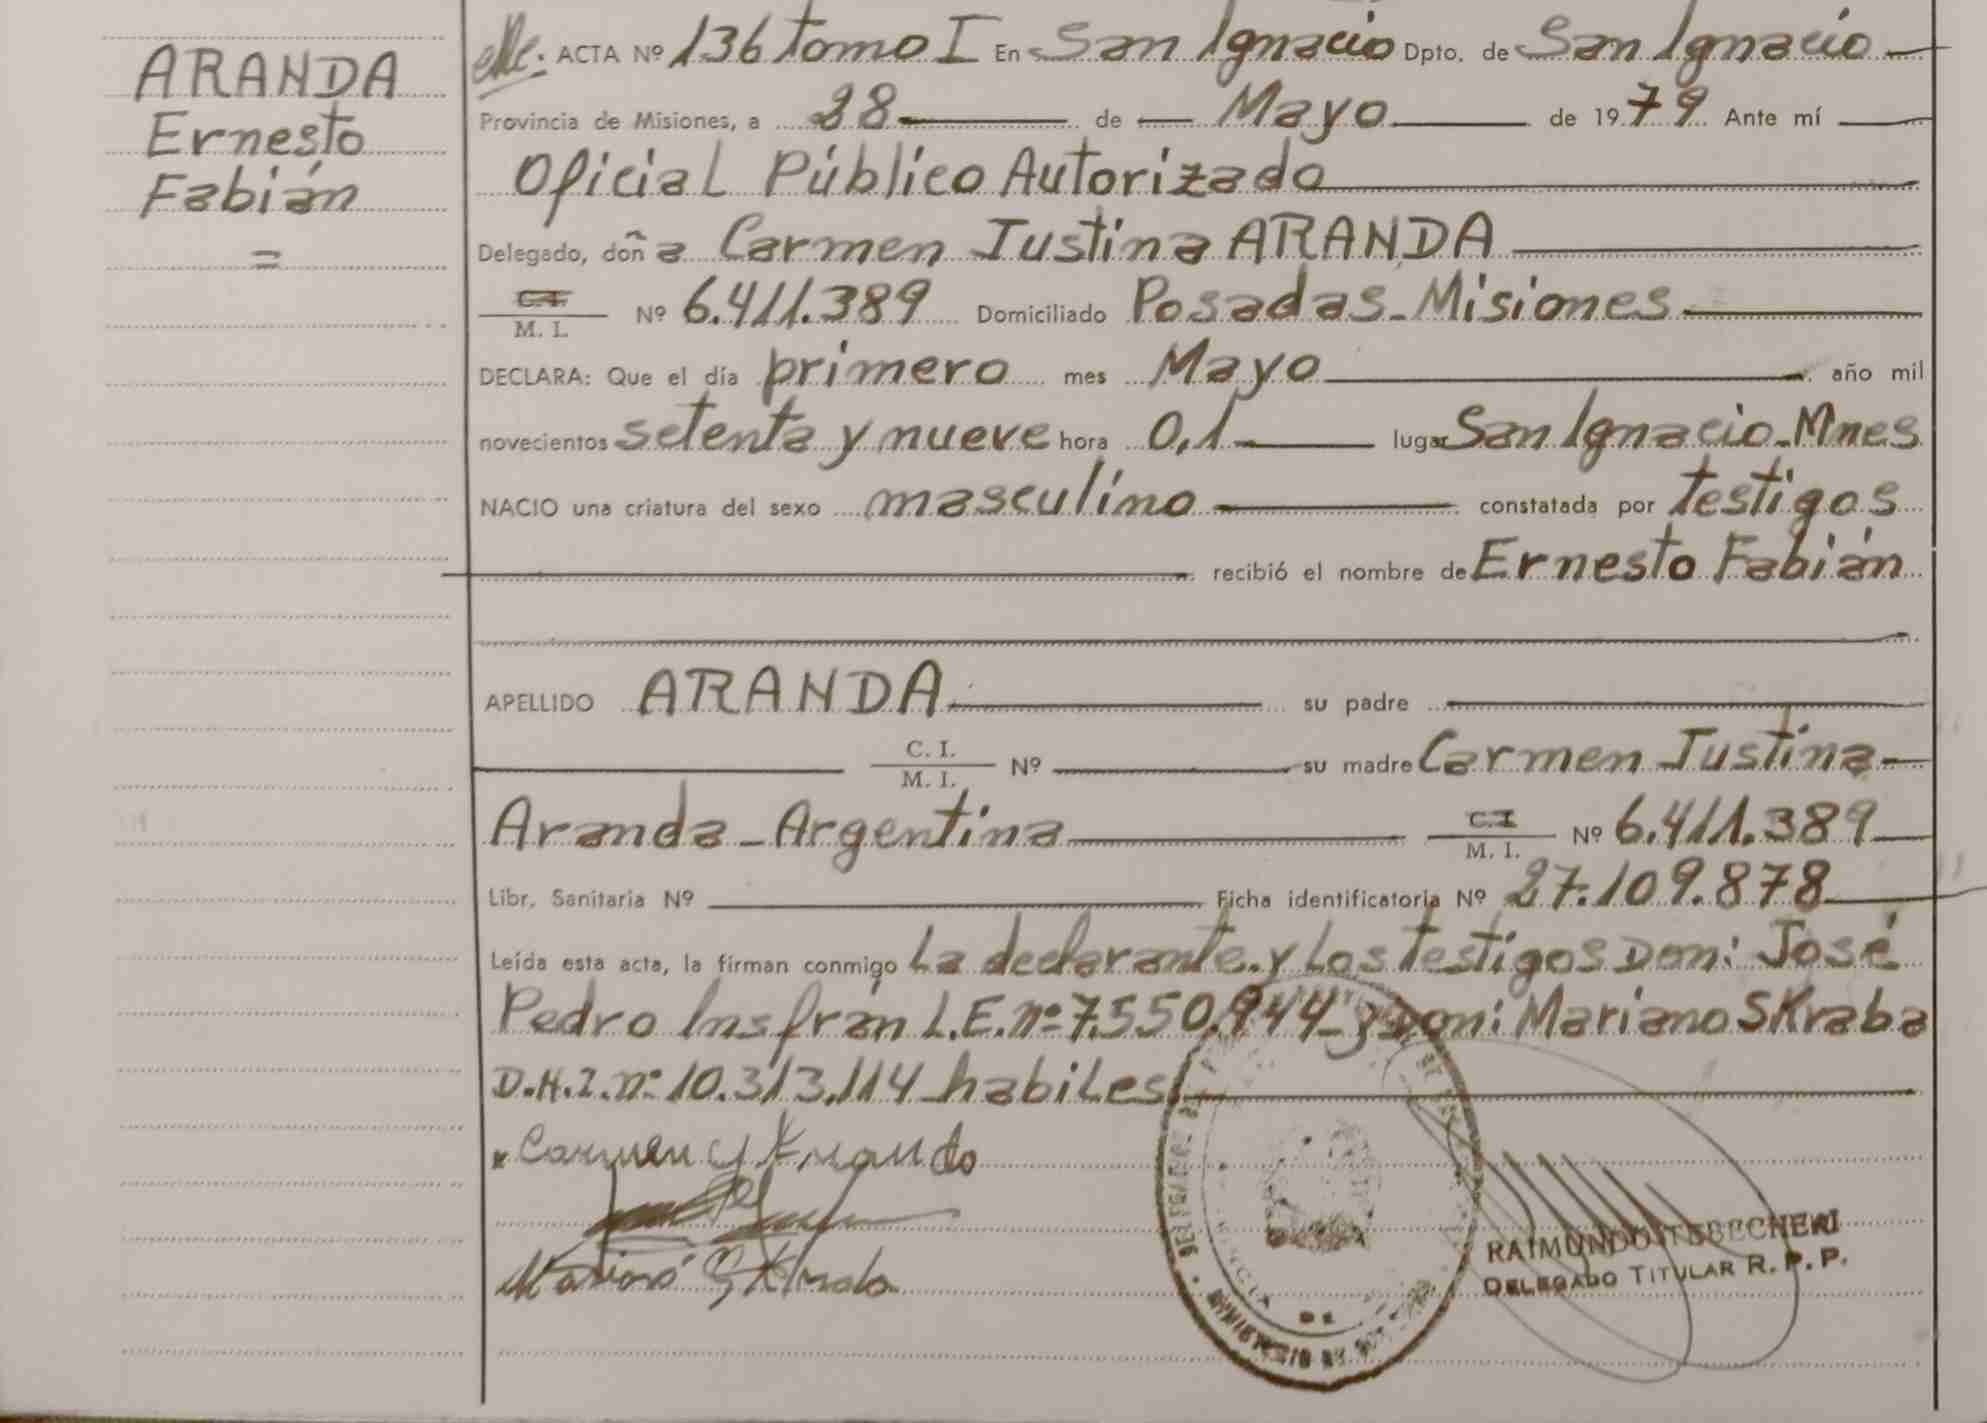 ARANDA
Ernesto
Fabián
=
ACTA Nº 136 tomo I En San Ignacio Dpto. de San Ignacio
Provincia de Misiones, a 28 de Mayo de 1979 Ante mí
Oficial Público Autorizado
Delegado, doña Carmen Justina ARANDA
C.I. / M. I. Nº 6.411.389 Domiciliado Posadas - Misiones
DECLARA: Que el día primero mes Mayo año mil
novecientos setenta y nueve hora 0,1 lugar San Ignacio - Mnes
NACIO una criatura del sexo masculino constatada por testigos
recibió el nombre de Ernesto Fabián
APELLIDO ARANDA su padre
C. I. / M. I. Nº su madre Carmen Justina
Aranda - Argentina C.I / M. I. Nº 6.411.389
Libr. Sanitaria Nº Ficha identificatoria Nº 27.109.878
Leída esta acta, la firman conmigo la declarante y los testigos Don: José
Pedro Insfrán L.E. nº 7.550.944 y Don: Mariano SKraba
D.N.I. nº 10.313.114 habiles
Carmen J Aranda
RAIMUNDO TEBECHERI
DELEGADO TITULAR R. P. P.